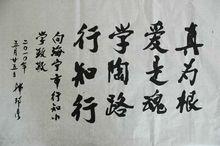 真为根
爱是魂
学陶路
行知行
向海宁市行知小
学致敬
二〇〇年
三月廿五日